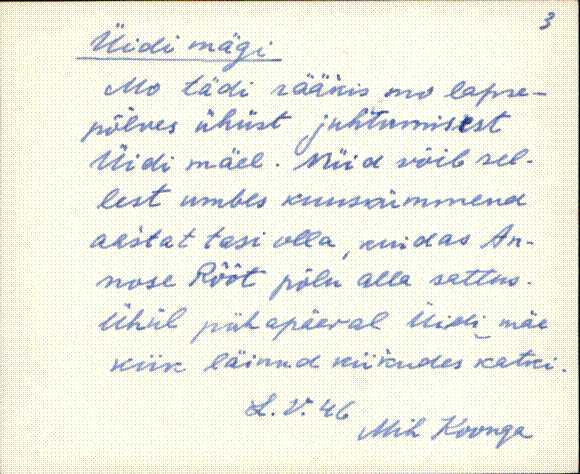 3
Üidi mägi
Mo tädi rääkis mo lapse-
põlves ühüst juhtumisest
Üidi mäel. Nüid võib sel-
lest umbes kuuskümmend
aastat tasi olla, kuidas An-
nose Rööt põlu alla sattus.
Ühül pühapäeval Üidi mäe
kiik läinud kiikudes katki.
L. V. 46
Mih Koonga